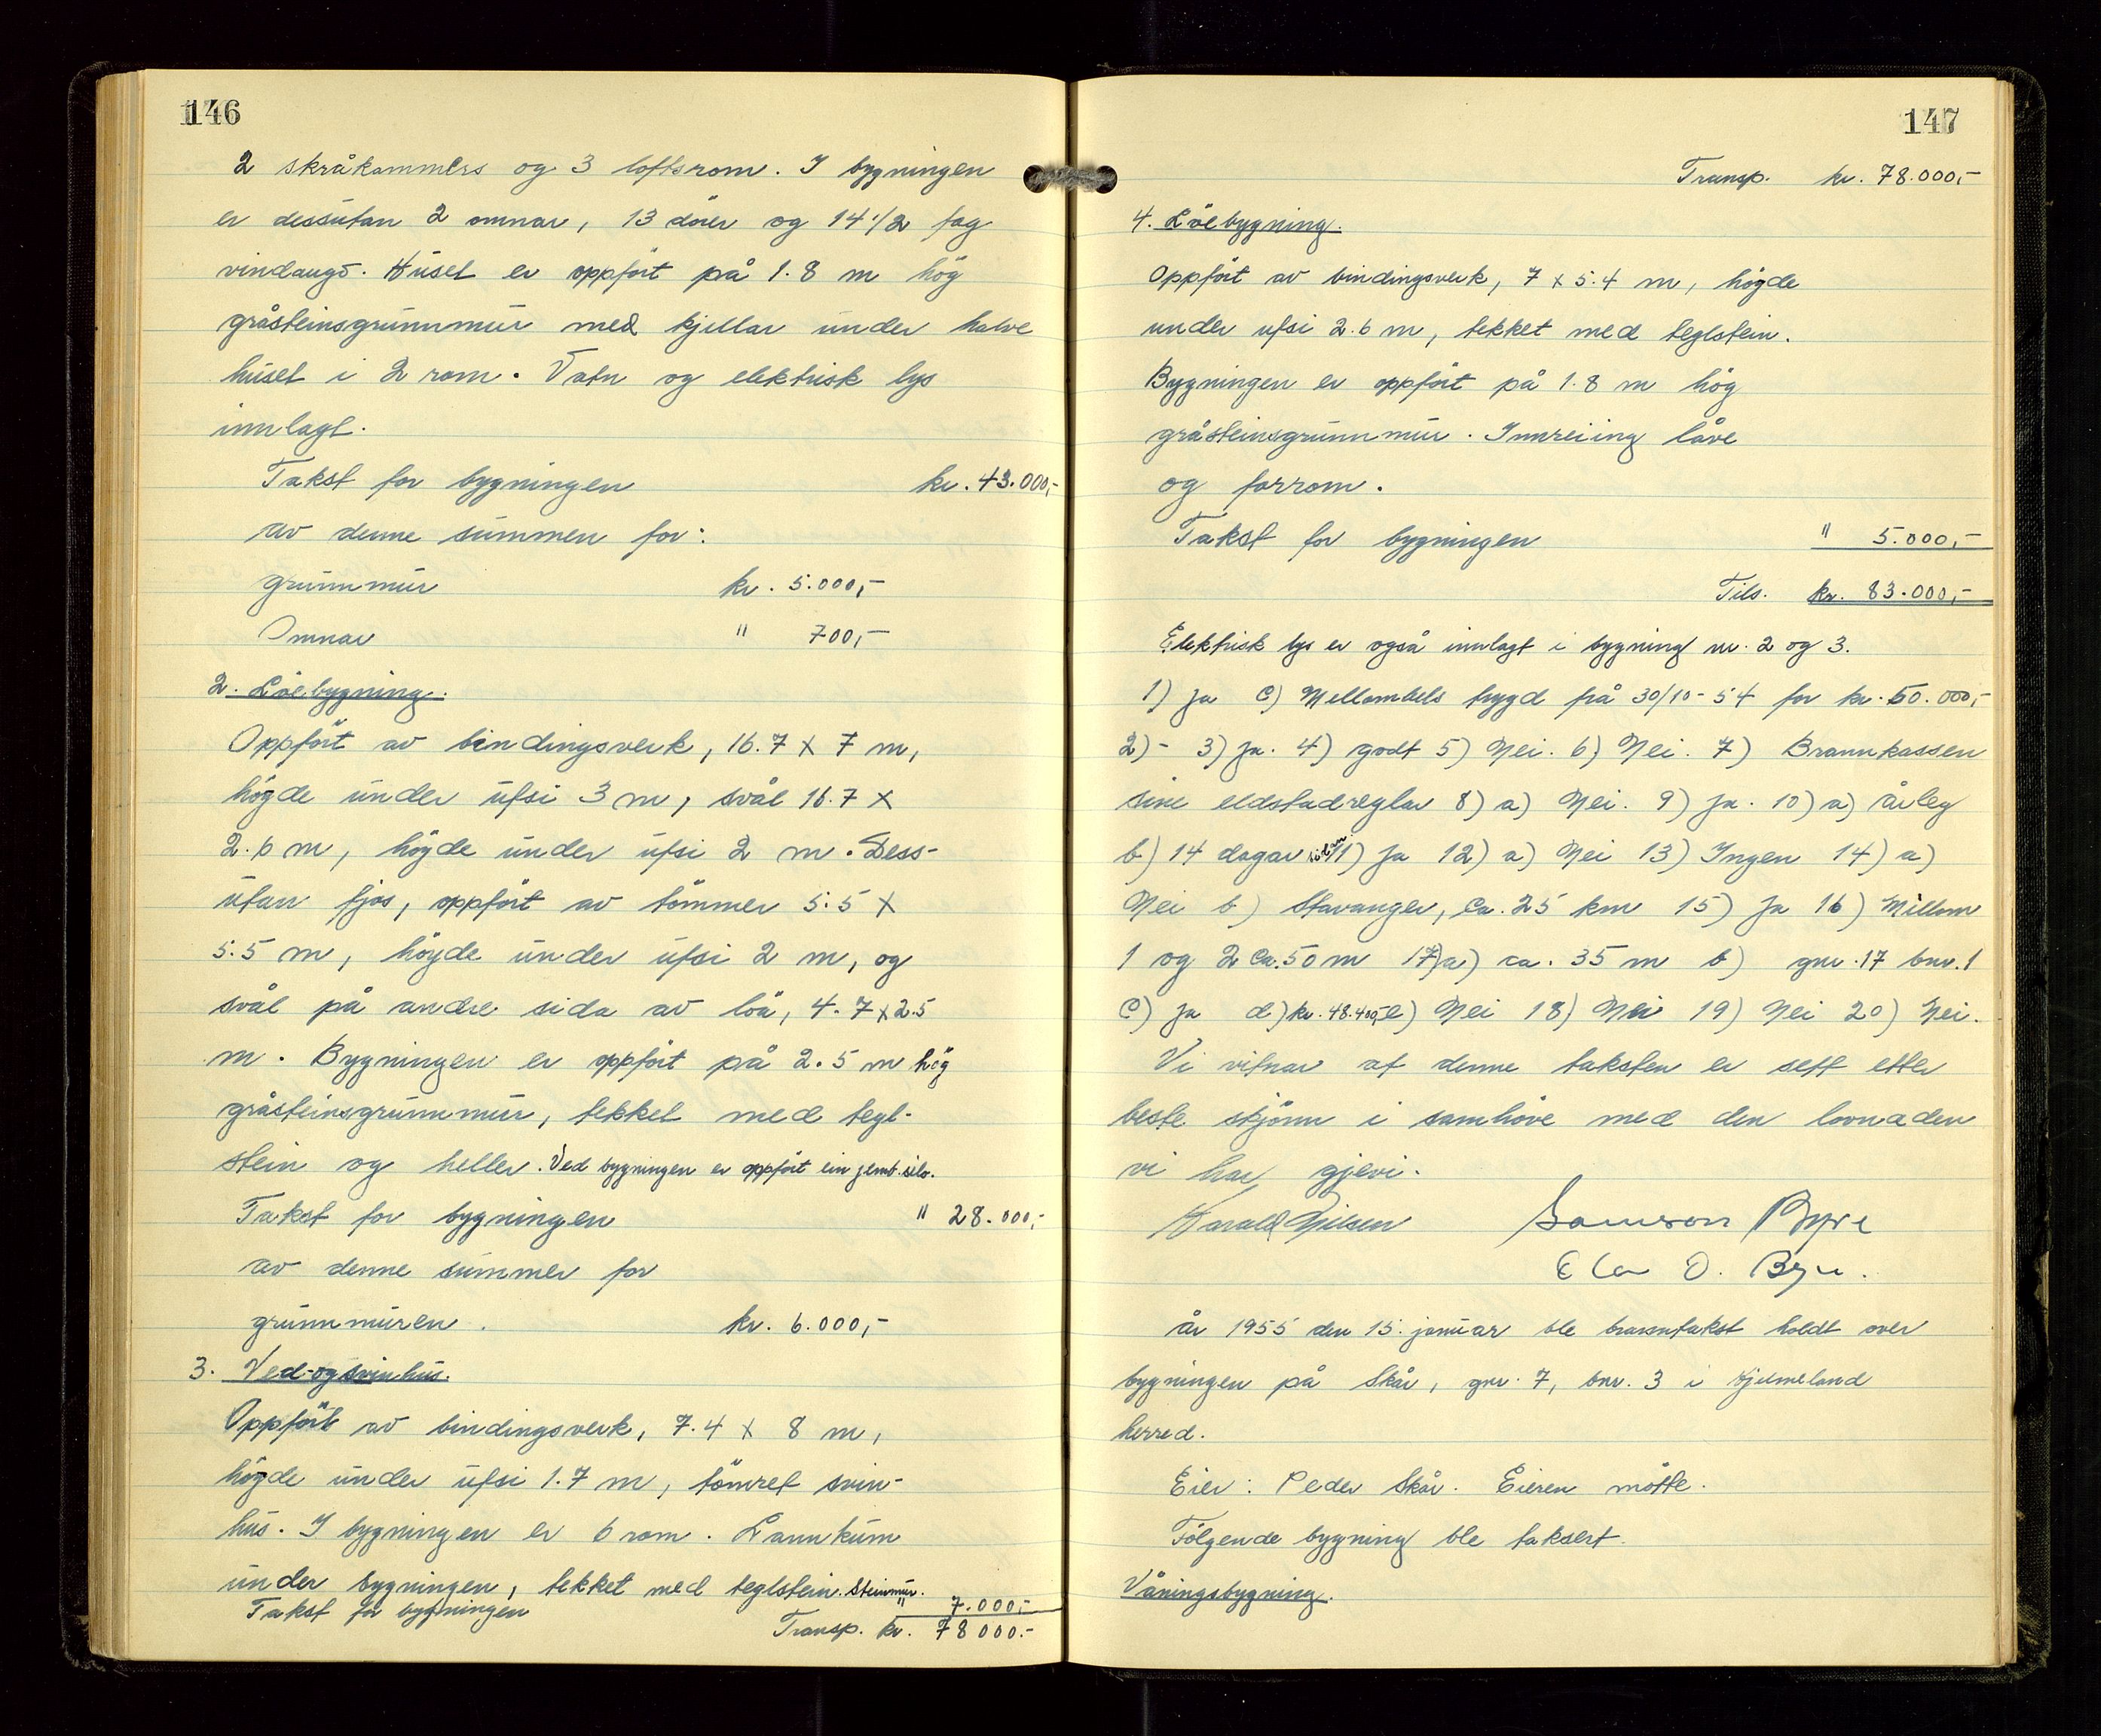 146
2 skråkammers og 3 loftsrom. I bygningen
er dessutan 2 omnar, 13 dörer og 14 1/2 fag
vindaugo. Huset er oppfört på 1.8 m hög
gråsteinsgrunnmur med kjellar under halve
huset i 2 rom. Vatn og elektrisk lys
innlagt.
Takst for bygningen kr. 43.000,-
av denne summen for:
grunnmur kr. 5.000,-
Omnar " 700,-
2. Löebygning.
Oppfört av bindingsverk, 16.7 x 7 m,
högde under ufsi 3 m, svål 16.7 x
2.6 m, högde under ufsi 2 m. Dess-
utan fjos, oppfört av tömmer 5.5 x
5.5 m, högde under ufsi 2 m, og
svål på andre sida av löa, 4.7 x 2.5
m. Bygningen er oppfört på 2.5 m hög
gråsteinsgrunnmur, tekket med tegl-
stein og heller. Ved bygningen er oppfört ein jemb. silo.
Takst for bygningen " 28.000,-
av denne summer for
grunnmuren. kr. 6.000,-
3. Ved-og svinhus.
Oppfört av bindingsverk, 7.4 x 8 m,
högde under ufsi 1.7 m, tömret svin-
hus. I bygningen er 6 rom. Lannkum
under bygningen, tekket med teglstein. Steinmur.
Takst for bygningen " 7.000,-
Transp. kr. 78000.-
147
Transp. kr. 78.000,-
4. Löebygning.
Oppfört av bindingsverk, 7 x 5.4 m, högde
under ufsi 2.6 m, tekket med teglstein.
Bygningen er oppfört på 1.8 m hög
gråsteinsgrunnmur. Innreiing låve
og forrom.
Takst for bygningen " 5.000,-
Tils. kr. 83.000,-
Elektrisk lys er også innlagt i bygning nr. 2 og 3.
1) Ja c) Mellombels trygd frå 30/10-54 for kr. 60.000,-
2) - 3) Ja. 4) godt 5) Nei. 6) Nei. 7) Brannkassen
sine eldstadreglar 8) a) Nei. 9) Ja. 10) a) årleg
b) 14 dagar 11) Ja 12) a) Nei 13) Ingen 14) a)
Nei b) Stavanger, ca. 25 km 15) Ja 16) Millom
1 og 2 ca. 50 m 17) a) ca. 35 m b) gnr. 17 bnr. 1
c) Ja d) kr. 48.400,- e) Nei 18) Nei 19) Nei 20) Nei.
Vi vitnar at denne taksten er sett etter
beste skjönn i samhöve med den lovnaden
vi har gjevi.
Harald Nilsen Samson Byre
O. Byre.
År 1955 den 15. januar ble branntakst holdt over
bygningen på Skår, gnr. 7, bnr. 3 i Hjelmeland
herred.
Eier: Peder Skår. Eieren mötte.
Fölgende bygning ble taksert.
Våningsbygning.